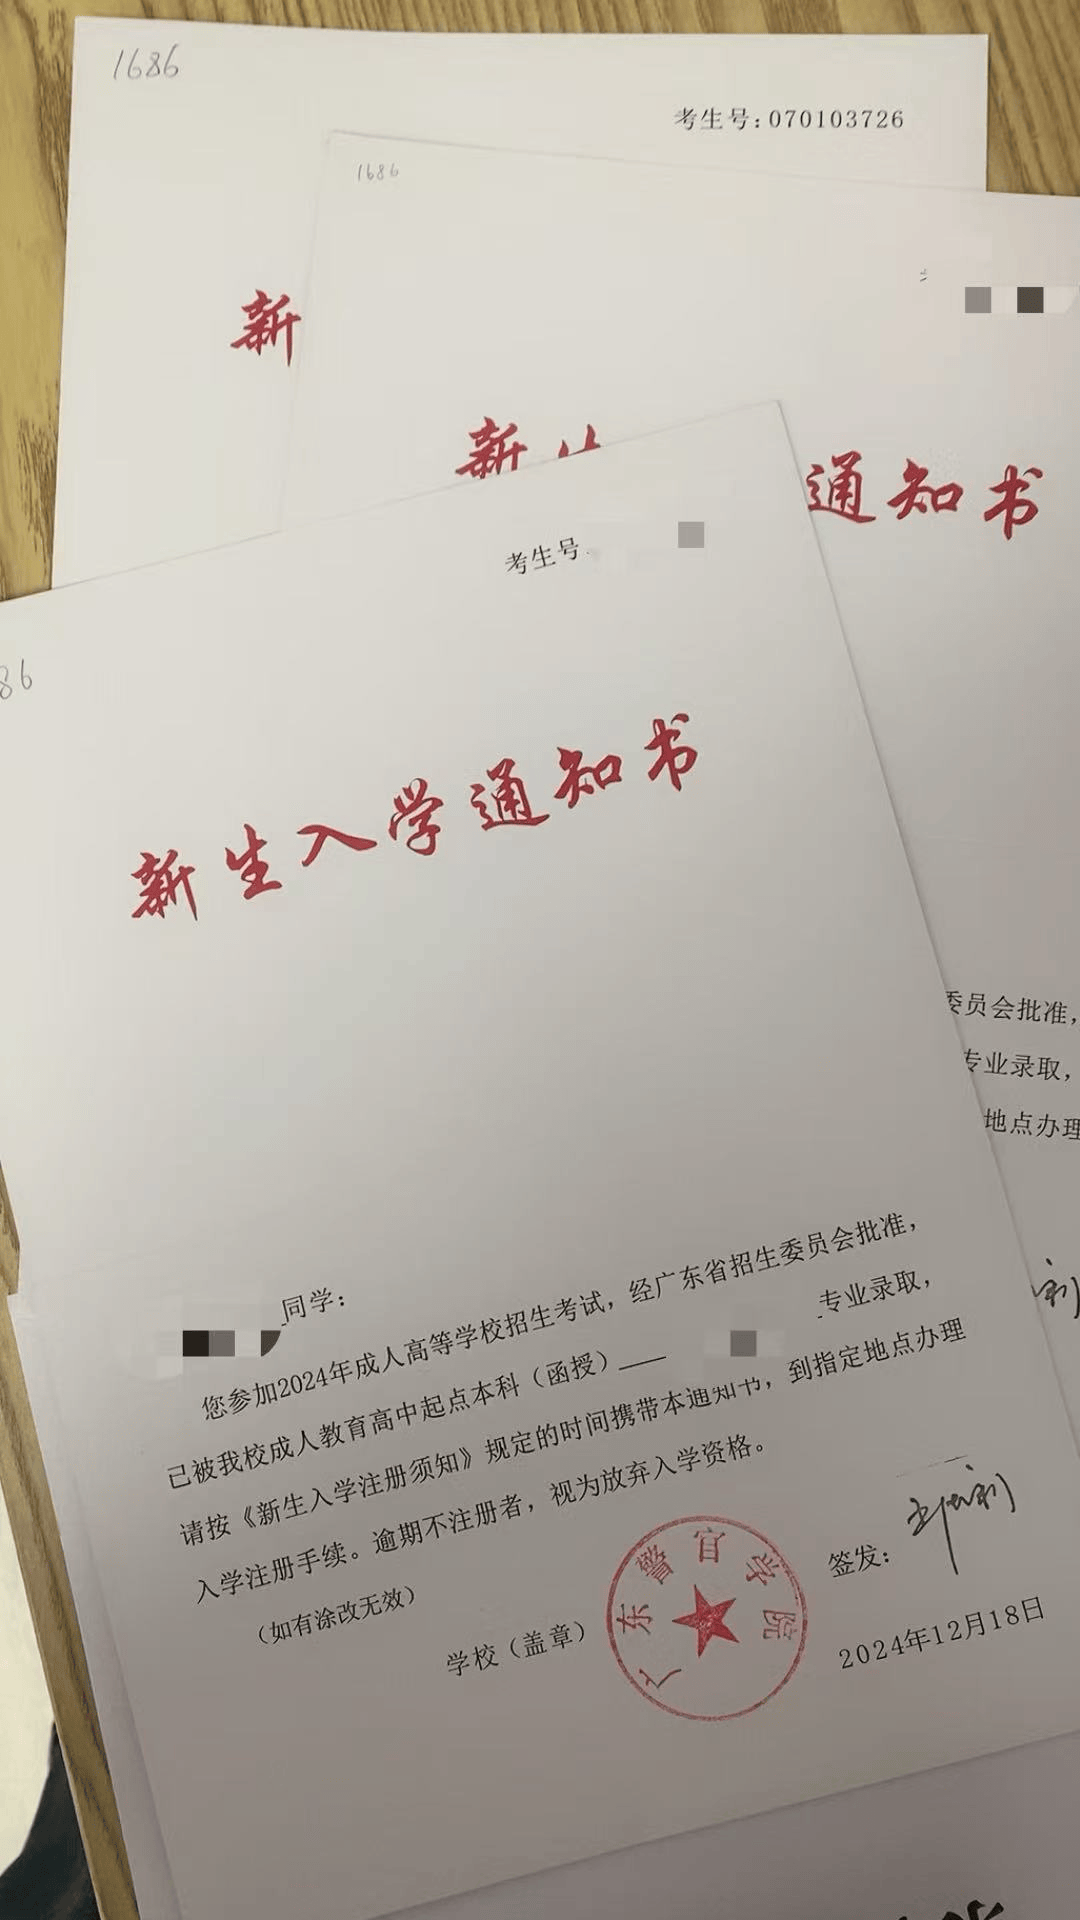 1686
考生号:070103726
1686
新
新
通知书
考生号
86
新生入学通知书
委员会批准，
专业录取，
地点办理
同学：
您参加2024年成人高等学校招生考试，经广东省招生委员会批准，
已被我校成人教育高中起点本科（函授） 专业录取，
请按《新生入学注册须知》规定的时间携带本通知书，到指定地点办理
入学注册手续。逾期不注册者，视为放弃入学资格。
（如有涂改无效）
签发：
学校（盖章）
广东警官学院
2024年12月18日